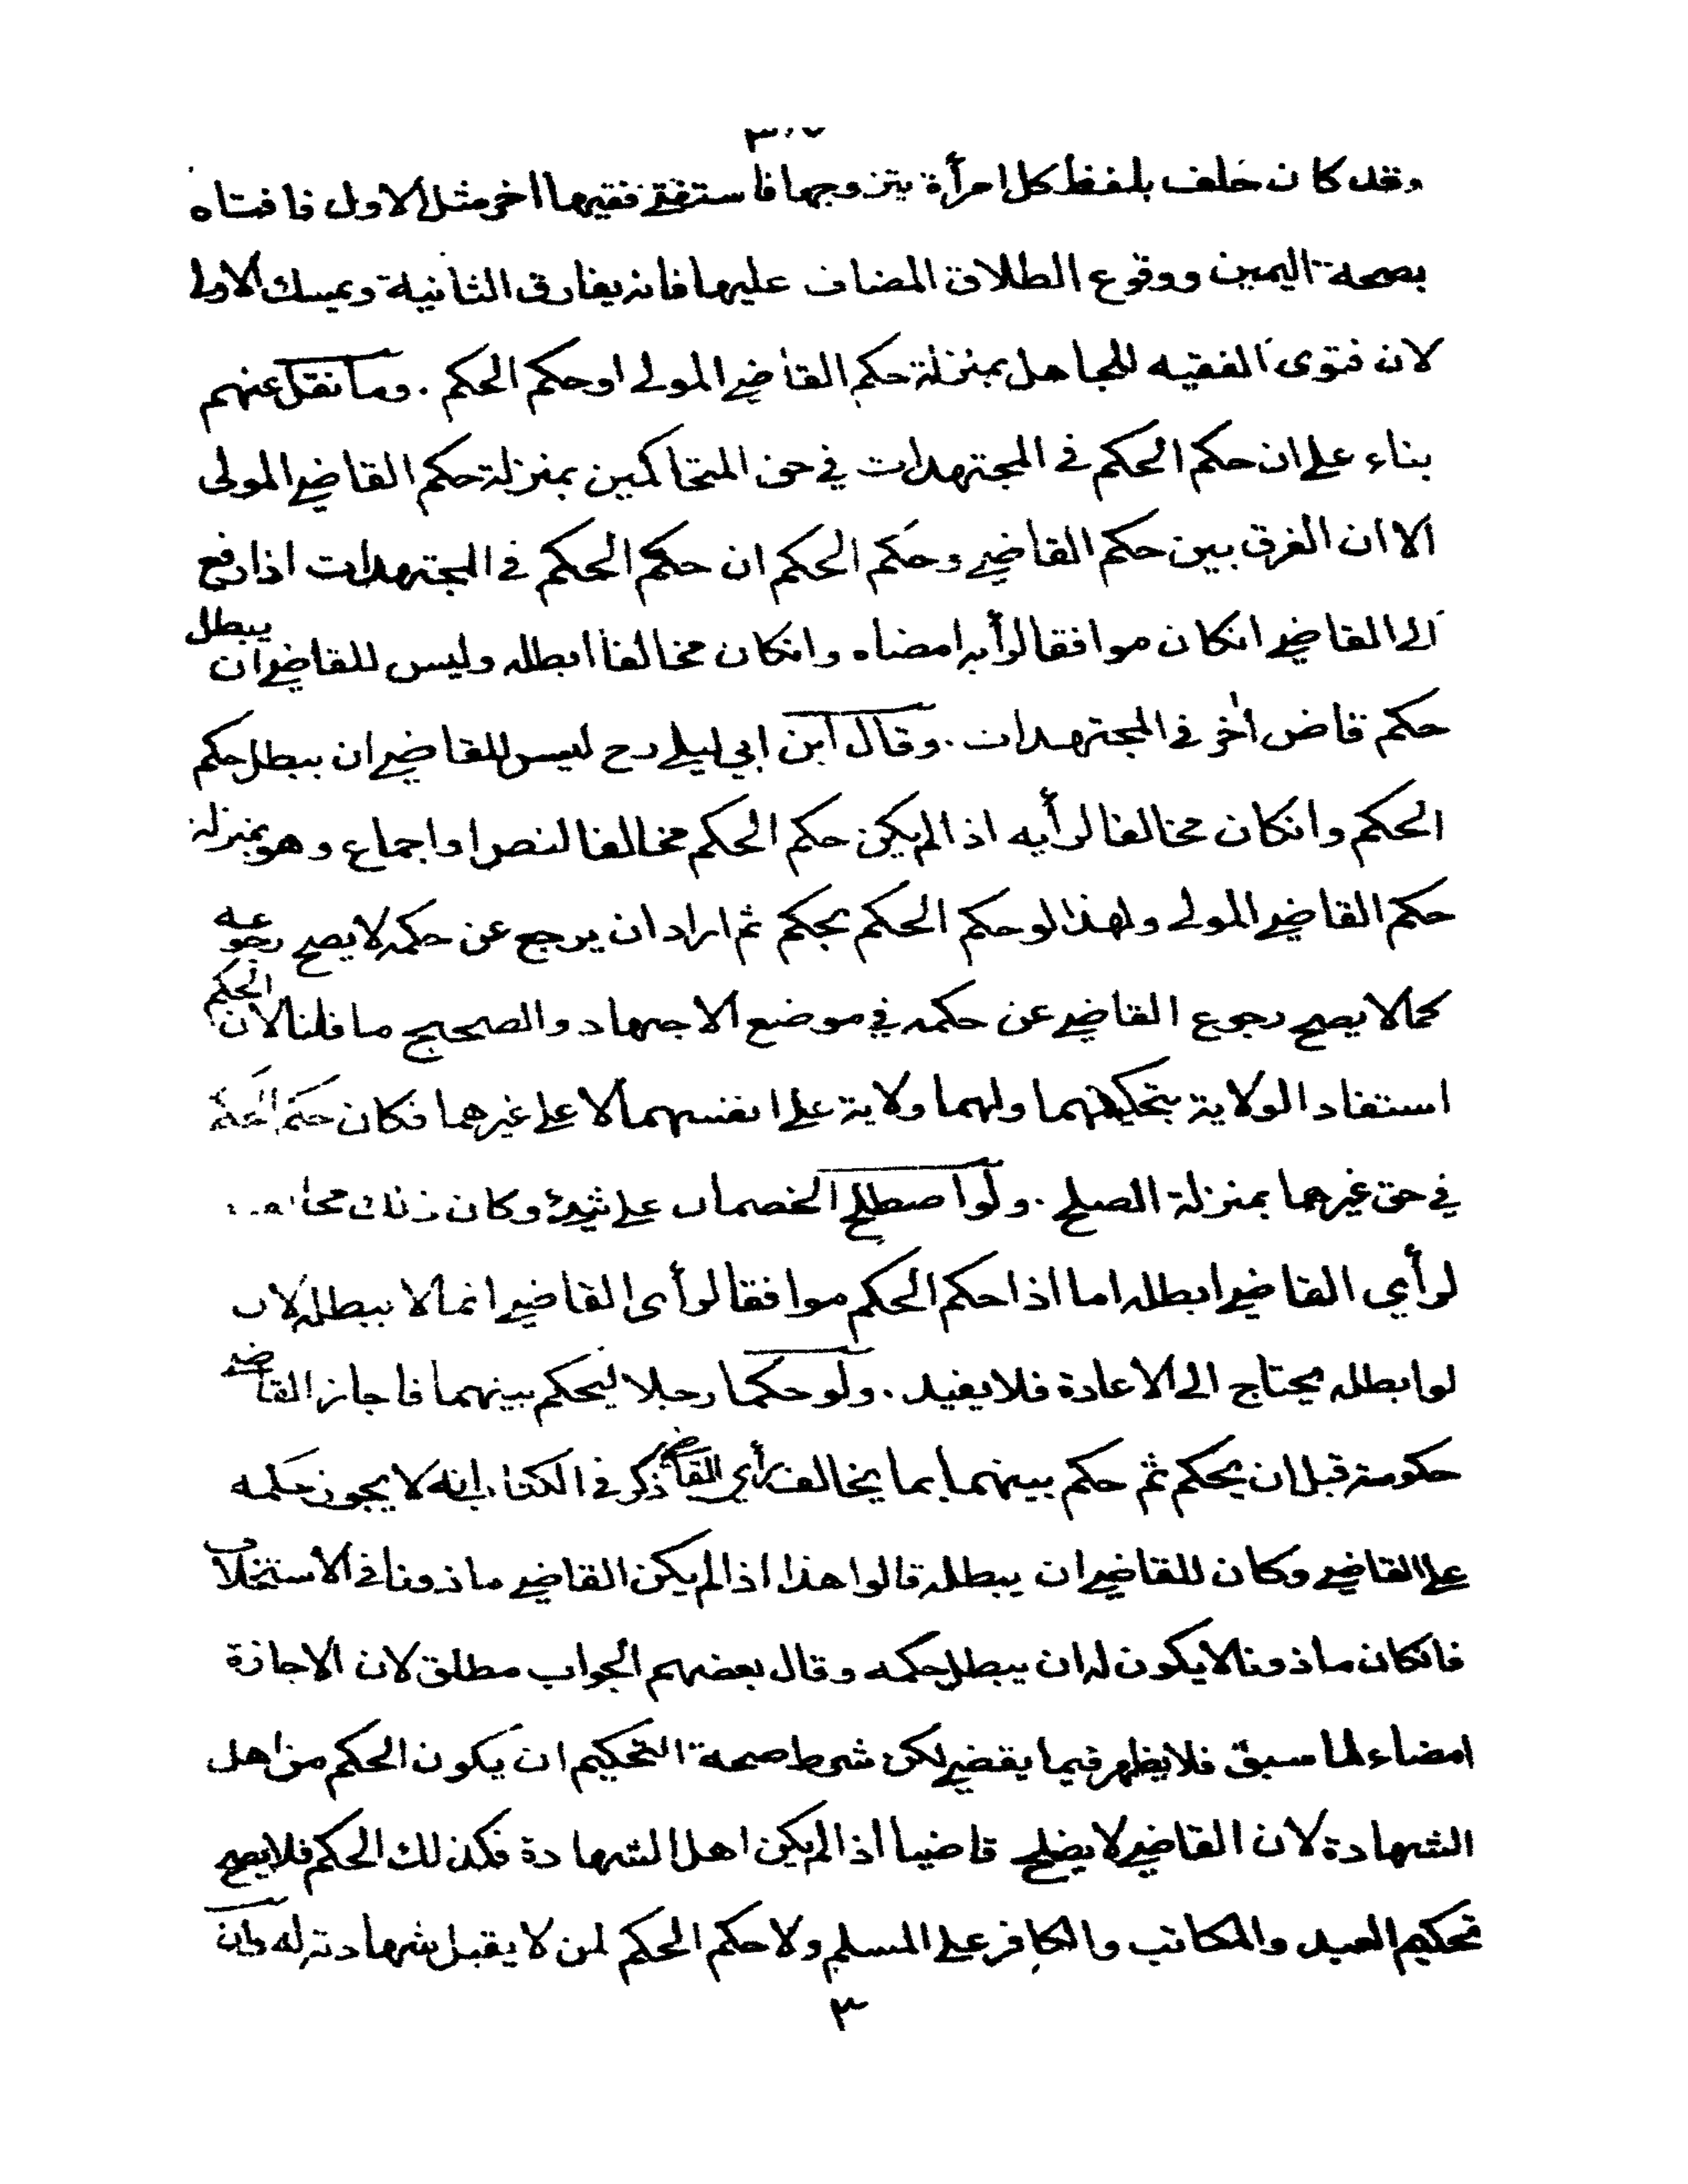 وقد كان حلف بلفظ كل امرأة يتزوجها فاستفتى فقيها اخر مثل الاول فافتاه
بصحة اليمين ووقوع الطلاق المضاف عليها فانه يفارق الثانية ويمسك الاولى
لان فتوى الفقيه للجاهل بمنزلة حكم القاضي المولى او حكم الحكم . وما نقل عنهم
بناء على ان حكم الحكم في المجتهدات في حق المتحاكمين بمنزلة حكم القاضي المولى
الا ان الفرق بين حكم القاضي وحكم الحكم ان حكم الحكم في المجتهدات اذا رفع
الى القاضي انكان موافقا لرأيه امضاه وانكان مخالفا ابطله وليس للقاضي ان يبطل
حكم قاض اخر في المجتهدات . وقال ابن ابي ليلى رح ليس للقاضي ان يبطل حكم
الحكم وانكان مخالفا لرأيه اذا لم يكن حكم الحكم مخالفا لنص او اجماع وهو بمنزلة
حكم القاضي المولى ولهذا لو حكم الحكم بحكم ثم اراد ان يرجع عن حكمه لا يصح رجوعه
كما لا يصح رجوع القاضي عن حكمه في موضع الاجتهاد والصحيح ما قلنا لان الحكم
استفاد الولاية بتحكيمهما ولهما ولاية على انفسهما لا على غيرهما فكان حكم الحكم
في حق غيرهما بمنزلة الصلح . ولو اصطلح الخصمان على شيئ وكان ذلك مخالفا
لرأي القاضي ابطله اما اذا حكم الحكم موافقا لرأى القاضي انما لا يبطله لان
لو ابطله يحتاج الى الاعادة فلا يفيد . ولو حكما رجلا ليحكم بينهما فاجاز القاضي
حكومته قبل ان يحكم ثم حكم بينهما بما يخالف رأي القاضي ذكر في الكتاب انه لا يجوز حكمه
على القاضي وكان للقاضي ان يبطله قالوا هذا اذا لم يكن القاضي ماذونا في الاستخلاف
فانكان ماذونا لا يكون له ان يبطل حكمه وقال بعضهم الجواب مطلق لان الاجازة
امضاء لما سبق فلا يظهر فيما يقضي لكن شرط صحة التحكيم ان يكون الحكم من اهل
الشهادة لان القاضي لا يصلح قاضيا اذا لم يكن اهل الشهادة فكذلك الحكم فلا يصح
تحكيم العبد والمكاتب والكافر على المسلم ولا حكم الحكم لمن لا يقبل شهادته له
٣